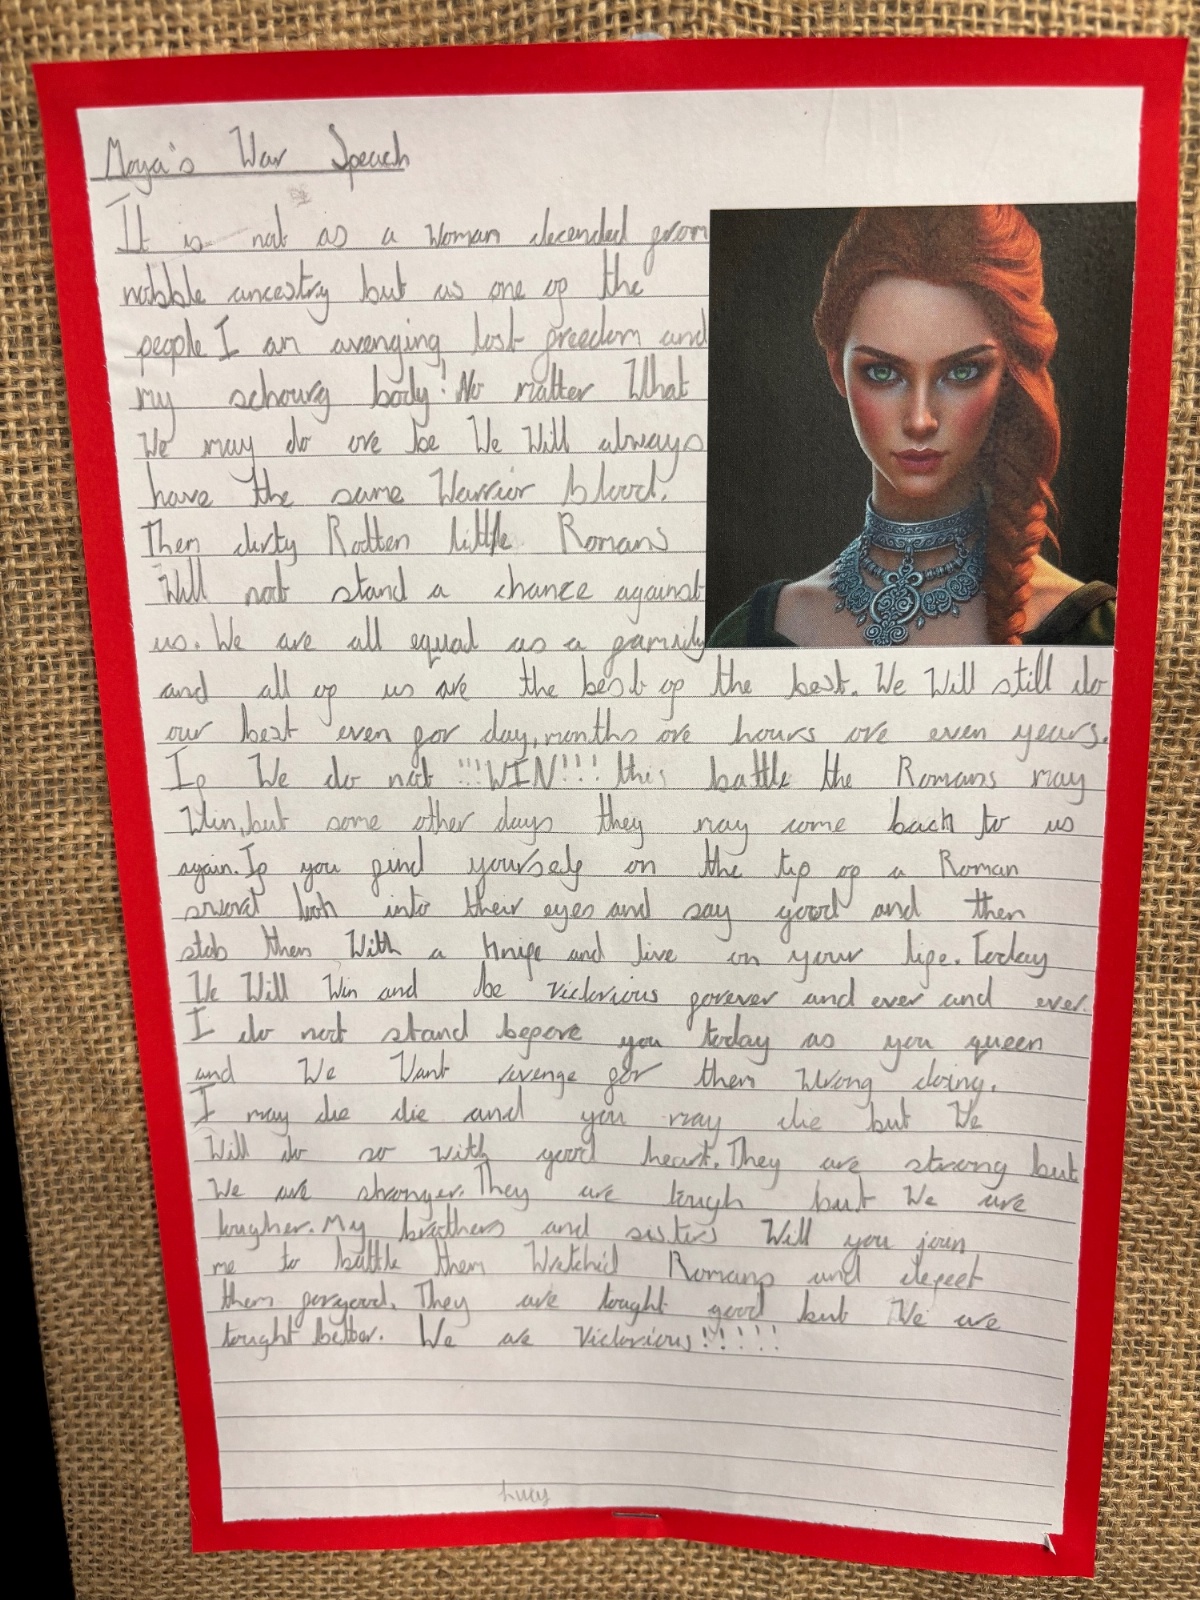 Moya's War Speach
It is not as a Woman decended from
nobble ancestry but as one of the
people I am avenging lost freedom and
my schourg body! No matter What
We may do ore be We Will always
have the same Warrior blood.
Them dirty Rotten little Romans
Will not stand a chance against
us. We are all equal as a family
and all of us are the best of the best. We Will still do
our best even for day, months ore hours ore even years.
If We do not !!!WIN!!! this battle the Romans may
Win, but some other days they may come back to us
again. If you find yourself on the tip of a Roman
sword look into their eyes and say good and then
stab them With a knife and live on your life. Today
We Will Win and be victorious forever and ever and ever.
I do not stand before you today as you queen
and We Want revenge for them Wrong doing.
I may die die and you may die but We
Will do so with good heart. They are strong but
We are stronger. They are tough but We are
tougher. My brothers and sisters Will you join
me to battle them Wretchid Romans and defeet
them forgood. They are tought good but We are
tought better. We are Victorious!!!!!
Lucy